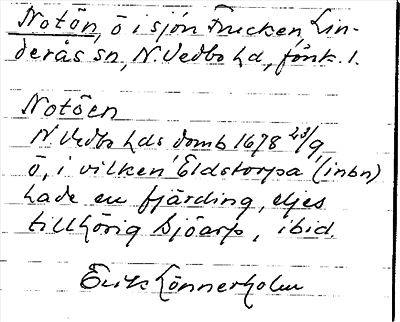 Notön, ö i sjön Frucken, Lin-
derås sn, N. Vedbo hd, Jönk. l.
Notöen
N Vedbo hds domb 1678 23/9,
ö, i vilken Eldstorpa (inbn)
hade en fjärding, eljes
tillhörig Sjöarp, ibid.
Erik Lönnerholm